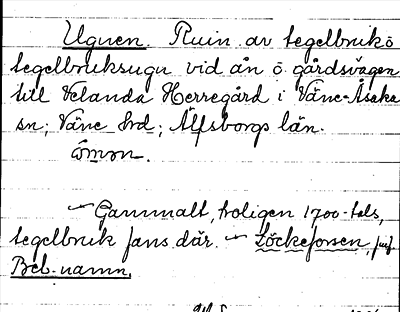 Ugnen. Ruin av tegelbruk o
tegelbruksugn vid ån o gårdsvägen
till Velanda Herregård i Väne-Åsaka
sn; Väne hrd; Älfsborgs län.
~ Gammalt, troligen 1700-tals,
tegelbruk fans där. ~ Löckeforsen,
Beb.-namn.